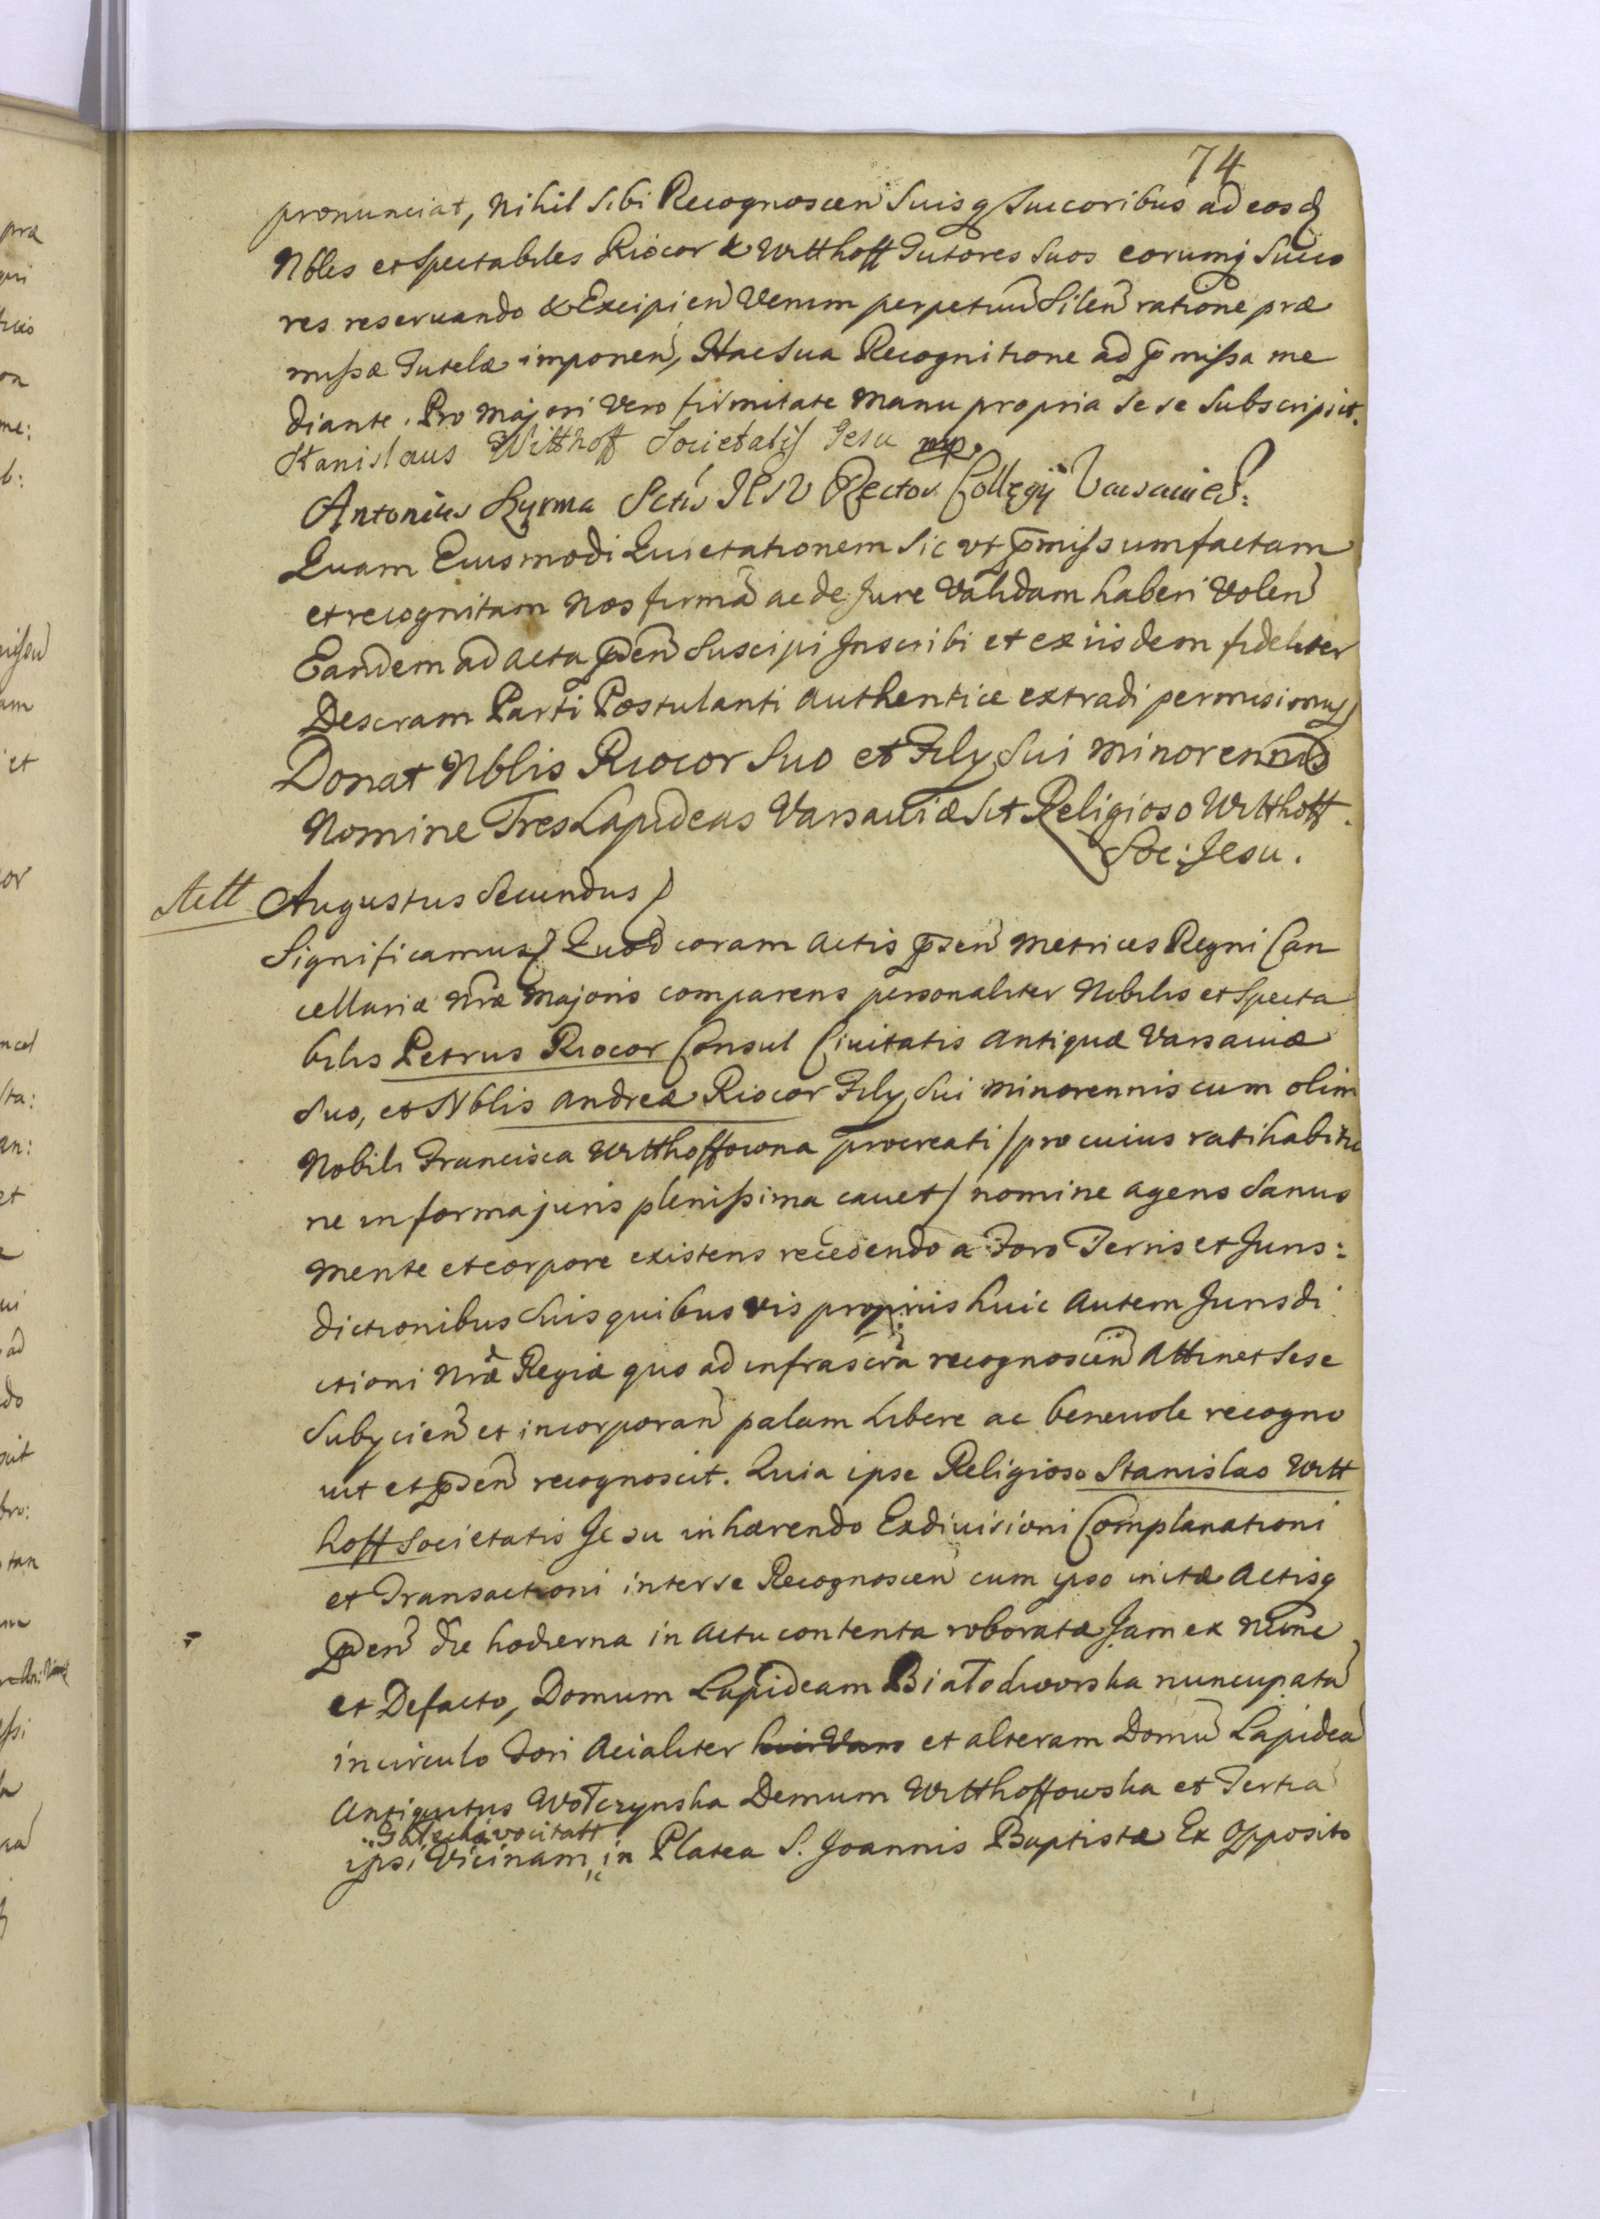 74
pronunciat, Nihil Sibi Recognoscen Suisq Succoribus ad eosq
Nbles et Spectabiles Riocor & Witthoff Tutores Suos eorumq Succo
res reservando & Excipien Verum perpetuu Silen ratione præ
missæ Tutelæ imponen, Hac Sua Recognitione ad p̄missa me
diante. Pro Majori Vero firmitate Manu propria se se Subscripsit.
Stanislaus Witthoff Societatis Jesu mp.
Antonius Hyrma Sctis JESV Rector Collegij Varsavien:
Quam Eiusmodi Quietationem Sic vt p̄missum factam
et recognitam Nos firmā ac de Jure Validam haberi Volen
Eandem ad Acta p̄sen Suscipi Inscribi et ex iisdem fideliter
Descram Parti Postulanti Authentice extradi permisimus
Donat Nblis Riocor Suo et Filij Sui Minorennis
Nomine Tres Lapideas Varsaviæ Sit Religioso Witthoff.
Soc: Jesu.
Augustus Secundus
Significamus Quod coram Actis p̄sen Metrices Regni Can
cellariæ Nræ Majoris comparens personaliter Nobilis et Specta
bilis Petrus Riocor Consul Civitatis Antiquæ Varsaviæ
Suo, et Nblis Andreæ Riocor Filij Sui Minorennis cum olim
Nobili Francisca Witthoffowna procreati / pro cuius ratihabitio
ne in forma juris plenissima cavet / nomine Agens Sanus
Mente et corpore existens recedendo a Foro Terris et Juris:
dictionibus Suis quibusvis proprijs huic Autem Jurisdi
ctioni Nræ Regiæ quo ad infrascra recognoscen Attinet Sese
Subijcien et incorporan palam Libere ac benevole recogno
vit et p̄sen recognoscit. Quia ipse Religioso Stanislao Witt
hoff Societatis Jesu inhærendo Exdivisioni Complanationi
et Transactioni inter se Recognoscen cum ipso initæ Actisq
p̄sen die hodierna in Actu contenta roboratæ Jam ex Nunc
et Defacto, Domum Lapideam Białodworska nuncupatā
in circulo Fori Acialiter et alteram Domū Lapideā
Antiquitus Wołczynska Demum Witthoffowska et Tertiā
vocitatt
ipsi Vicinam in Platea S. Joannis Baptistæ Ex Opposito